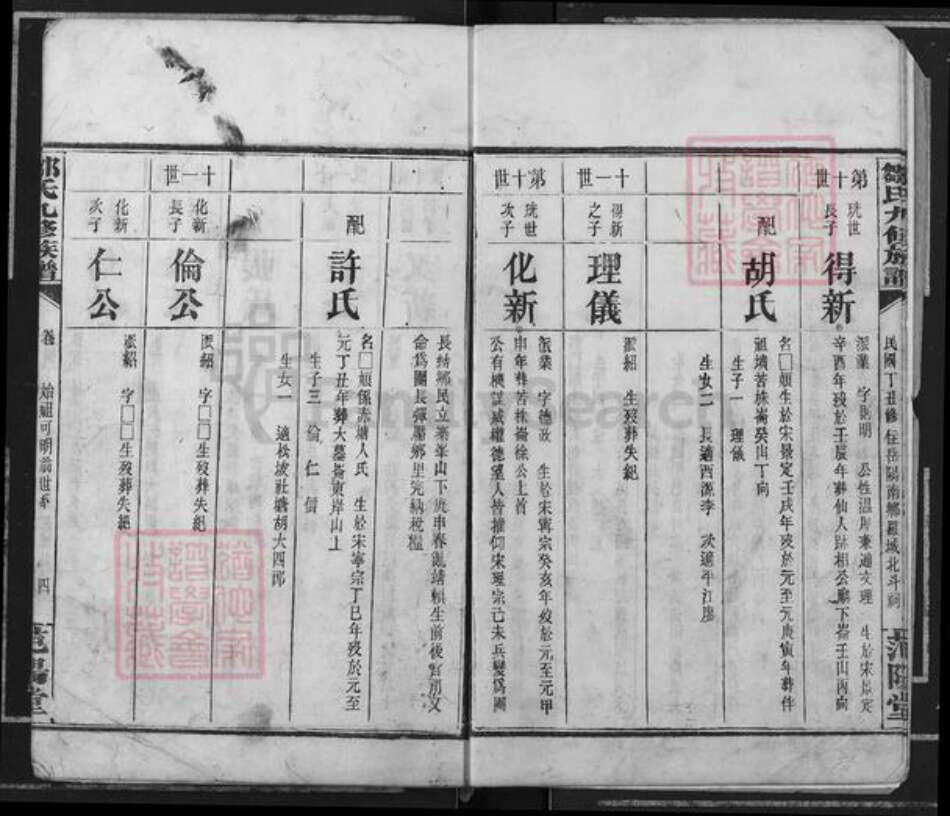 鄒氏九修族譜
民國丁丑修 住岳陽南鄉羅城北斗祠
范陽堂
第十世
珖世長子
得新
派業 字則明 公性溫厚兼通文理 生於宋景定
辛酉年歿於壬辰年葬仙人跡相公廟下崙壬山丙向
配
胡氏
名□娘生於宋景定壬戌年歿於元至元庚寅年葬伴
祖墳苦株崙癸山丁向
生子一 理儀
生女二 長適西源李 次適平江廖
十一世
得新之子
理儀
派紹 生歿葬失紀
第十世
珖世次子
化新
派業 字德政 生於宋寧宗癸亥年歿於元至元甲
申年葬苦株崙徐公上首
公有機謀威權德望人皆推仰宋理宗己未兵變為團
長結鄉民立寨峯山下庚申春亂靖賴生前後官府文
命為團長彈壓鄉里完納稅糧
配
許氏
名□娘係赤塘人氏 生於宋寧宗丁巳年歿於元至
元丁丑年葬大墓崙東岸山上
生子三 倫 仁 信
生女一 適松坡社塘胡大四郎
十一世
化新長子
倫公
派紹 字□□生歿葬失紀
化新次子
仁公
派紹 字□□生歿葬失紀
鄒氏九修族譜
卷 始祖可明前世系 四
范陽堂
FamilySearch